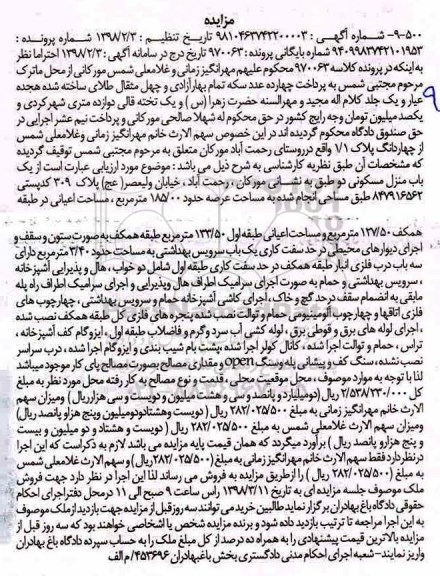 مزایده
۵۰۰-۹- شماره آگهی: ۹۸۱۰۴۶۳۷۴۲۲۰۰۰۰۳ تاریخ تنظیم: ۱۳۹۸/۲/۳ شماره پرونده:
۹۴۰۹۹۸۳۷۴۲۱۰۱۹۵۳ شماره بایگانی پرونده: ۹۷۰۰۶۳ تاریخ درج در سامانه آگهی: ۱۳۹۸/۲/۳ احتراما نظر
به اینکه در پرونده کلاسه ۹۷۰۰۶۳ محکوم علیهم مهرانگیز زمانی و غلامعلی شمس مورکانی از محل ماترک
مرحوم مجتبی شمس به پرداخت چهارده عدد سکه تمام بهار آزادی و چهل مثقال طلای ساخته شده هجده
عیار و یک جلد کلام اله مجید و مهر السنه حضرت زهرا (س) و یک تخته قالی دوازده متری شهرکردی و
یکصد میلیون تومان وجه رایج کشور در حق محکوم له شهلا صالحی مورکانی و پرداخت نیم عشر اجرایی در
حق صندوق دادگاه محکوم گردیده اند در این خصوص سهم الارث خانم مهرانگیز زمانی و غلامعلی شمس
از چهاردانگ پلاک ۱/۱ واقع در روستای رحمت آباد مورکان متعلق به مرحوم مجتبی شمس توقیف گردیده
که مشخصات آن طبق نظریه کارشناسی به شرح ذیل می باشد: موضوع مورد ارزیابی عبارت است از یک
باب منزل مسکونی دو طبق به نشانی مورکان، رحمت آباد، خیابان ولیعصر (عج) پلاک ۳۰۹ کدپستی
۸۴۷۹۱۶۵۶۲ طبق مساحی انجام شده به مساحت عرصه حدود ۱۸۵/۰۰ مترمربع، مساحت اعیانی در طبقه
همکف ۱۲۷/۵۰ مترمربع و مساحت اعیانی طبقه اول ۱۳۲/۵۰ مترمربع طبقه همکف به صورت ستون و سقف و
اجرای دیوارهای محیطی در حد سفت کاری یک باب سرویس بهداشتی به مساحت حدود ۳/۴۰ مترمربع دارای
سه باب درب فلزی انبار طبقه همکف در حد سفت کاری طبقه اول شامل دو خواب، هال و پذیرایی آشپزخانه
، سرویس بهداشتی و حمام به صورت اجرای سرامیک اطراف هال و پذیرایی و اجرای سرامیک اطراف راه پله
مابقی به انضمام سقف در حد گچ و خاک، اجرای کاشی آشپزخانه حمام و سرویس بهداشتی، چهارچوب های
فلزی اتاقها و چهارچوب آلومینیومی حمام و توالت نصب شده پنجره های فلزی کل طبقه همکف نصب شده
، اجرای لوله های برق و قوطی برق، لوله کشی آب سرد و گرم و فاضلاب طبقه اول، ایزوگام کف آشپزخانه،
تراس، حمام و توالت اجرا شده، کانال کولر اجرا شده، پشت بام شیب بندی و ایزوگام اجرا شده، درب سراسر
نصب نشده، سنگ کف و پیشانی پله و سنگ open و مقداری مصالح بصورت مصالح پای کار موجود میباشد
لذا با توجه به موارد موصوف، محل موقعیت محلی، قدمت و نوع مصالح به کار رفته محل مورد نظر به مبلغ
کل ۲/۵۳۸/۲۳۰/۰۰۰ ریال (دو میلیارد و پانصد و سی و هشت میلیون و دویست و سی هزار ریال) و میزان سهم
الارث خانم مهرانگیز زمانی به مبلغ ۲۸۲/۰۲۵/۵۰۰ ریال (دویست و هشتاد و دو میلیون و پنج هزار و پانصد ریال)
و میزان سهم الارث غلامعلی شمس به مبلغ ۲۸۲/۰۲۵/۵۰۰ ریال (دویست و هشتاد و دو میلیون و بیست
و پنج هزار و پانصد ریال) برآورد میگردد که همان قیمت پایه مزایده می باشد لازم به ذکر است که این اجرا
در نظر دارد فقط سهم الارث خانم مهرانگیز زمانی به مبلغ (۲۸۲/۰۲۵/۵۰۰ ریال) و سهم الارث غلامعلی شمس
به مبلغ (۲۸۲/۰۲۵/۵۰۰ ریال) را از طریق مزایده به فروش می رساند لذا این اجرا در نظر دارد جهت فروش
ملک موصوف جلسه مزایده ای به تاریخ ۱۳۹۸/۳/۱۱ راس ساعت ۹ صبح الی ۱۱ در محل دفتر اجرای احکام
حقوقی دادگاه باغ بهادران برگزار نماید طالبین خرید می توانند سه روز قبل از مزایده جهت بازدید از ملک موصوف
به این اجرا مراجعه تا ترتیب بازدید داده شود و برنده مزایده شخص یا اشخاصی خواهند بود که سه روز قبل از
مزایده بالاترین قیمت پیشنهادی را به همراه ده درصد از کل مبلغ ملک را به حساب سپرده دادگاه باغ بهادران
واریز نمایند- شعبه اجرای احکام مدنی دادگستری بخش باغبهادران ۴۵۳۶۹۶/م الف
۹